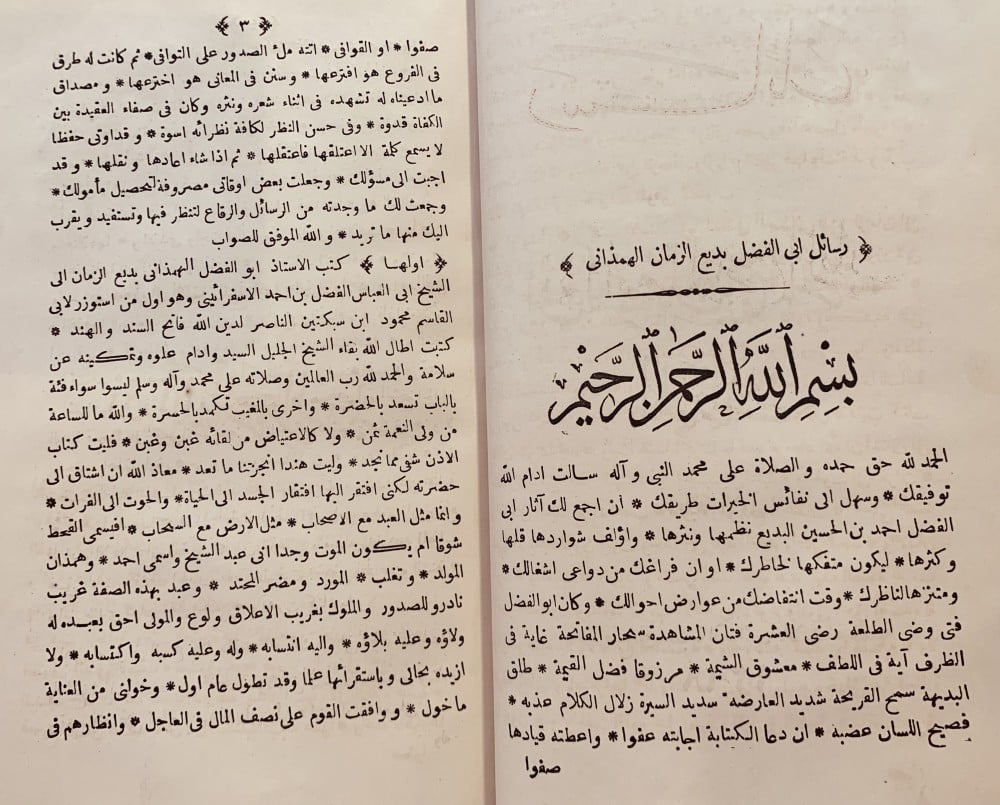 ﴿ رسائل ابى الفضل بديع الزمان الهمذانى ﴾
بِسْمِ اللَّهِ الرَّحْمَنِ الرَّحِيْمِ
الحمد لله حق حمده والصلاة على محمد النبى وآله سالت ادام الله
توفيقك * وسهل الى نفائس الخيرات طريقك * ان اجمع لك آثار ابى
الفضل احمد بن الحسين البديع نظمها ونثرها * واؤلف شواردها قلها
وكثرها * ليكون متفكها لخاطرك * اوان فراغك من دواعى اشغالك *
ومتنزها لناظرك * وقت انتفاضك من عوارض احوالك * وكان ابو الفضل
فتى وضى الطلعة رضى العشرة فتان المشاهدة سحار المفاتحة غاية فى
الظرف آية فى اللطف * معشوق الشيمة * مرزوقا فضل القيمة * طلق
البديهة سمح القريحة شديد العارضة سديد السيرة زلال الكلام عذبه *
فصيح اللسان عضبه * ان دعا الكتابة اجابته عفوا * واعطته قيادها
صفوا
﴿ ٣ ﴾
صفوا * او القوافى * اتته ملء الصدور على التوافى * ثم كانت له طرق
فى الفروع هو افترعها * وسنن فى المعانى هو اخترعها * ومصداق
ما ادعيناه له تشهده فى اثناء شعره ونثره وكان فى صفاء العقيدة بين
الكفاة قدوة * وفى حسن النظر لكافة نظرائه اسوة * وقد اوتى حفظا
لا يسمع كلمة الا اعتلقها فاعتقلها * ثم اذا شاء اعادها ونقلها * وقد
اجبت الى مسؤلك * وجعلت بعض اوقاتى مصروفة لتحصيل مأمولك *
وجمعت لك ما وجدته من الرسائل والرقاع لتنظر فيها وتستفيد ويقرب
اليك منها ما تريد * والله الموفق للصواب
﴿ اولها ﴾ كتب الاستاذ ابو الفضل الهمذانى بديع الزمان الى
الشيخ ابى العباس الفضل بن احمد الاسفرائينى وهو اول من استوزر لابى
القاسم محمود ابن سبكتين الناصر لدين الله فاتح السند والهند *
كتبت اطال الله بقاء الشيخ الجليل السيد وادام علوه وتمكينه عن
سلامة والحمد لله رب العالمين وصلاته على محمد وآله وسلم ليسوا سواء فئة
بالباب تسعد بالحضرة * واخرى بالمغيب تكمد بالحسرة * والله ما للساعة
من ولى النعمة ثمن * ولا كالاعتياض من لقائه غبن وغبن * فليت كتاب
الاذن شفى مما نجد * وليت هندا انجزتنا ما تعد * معاذ الله ان اشتاق الى
حضرته لكنى افتقر اليها افتقار الجسد الى الحياة * والحوت الى الفرات *
وانما مثل العبد مع الاصحاب * مثل الارض مع السحاب * افيسمى القحط
شوقا ام يكون الموت وجدا انى عبد الشيخ واسمى احمد * وهمذان
المولد * وتغلب * المورد ومضر المحتد * وعبد بهذه الصفة غريب
نادر وللصدور والملوك بغريب الاعلاق ولوع والمولى احق بعبده له
ولاؤه وعليه بلاؤه * واليه انتسابه * وله وعليه كسبه واكتسابه * ولا
ازيده بحالى وباستقرائها علما وقد تطول عام اول * وخولنى من العناية
ما خول * ووافقت القوم على نصف المال فى العاجل * وانظارهم فى